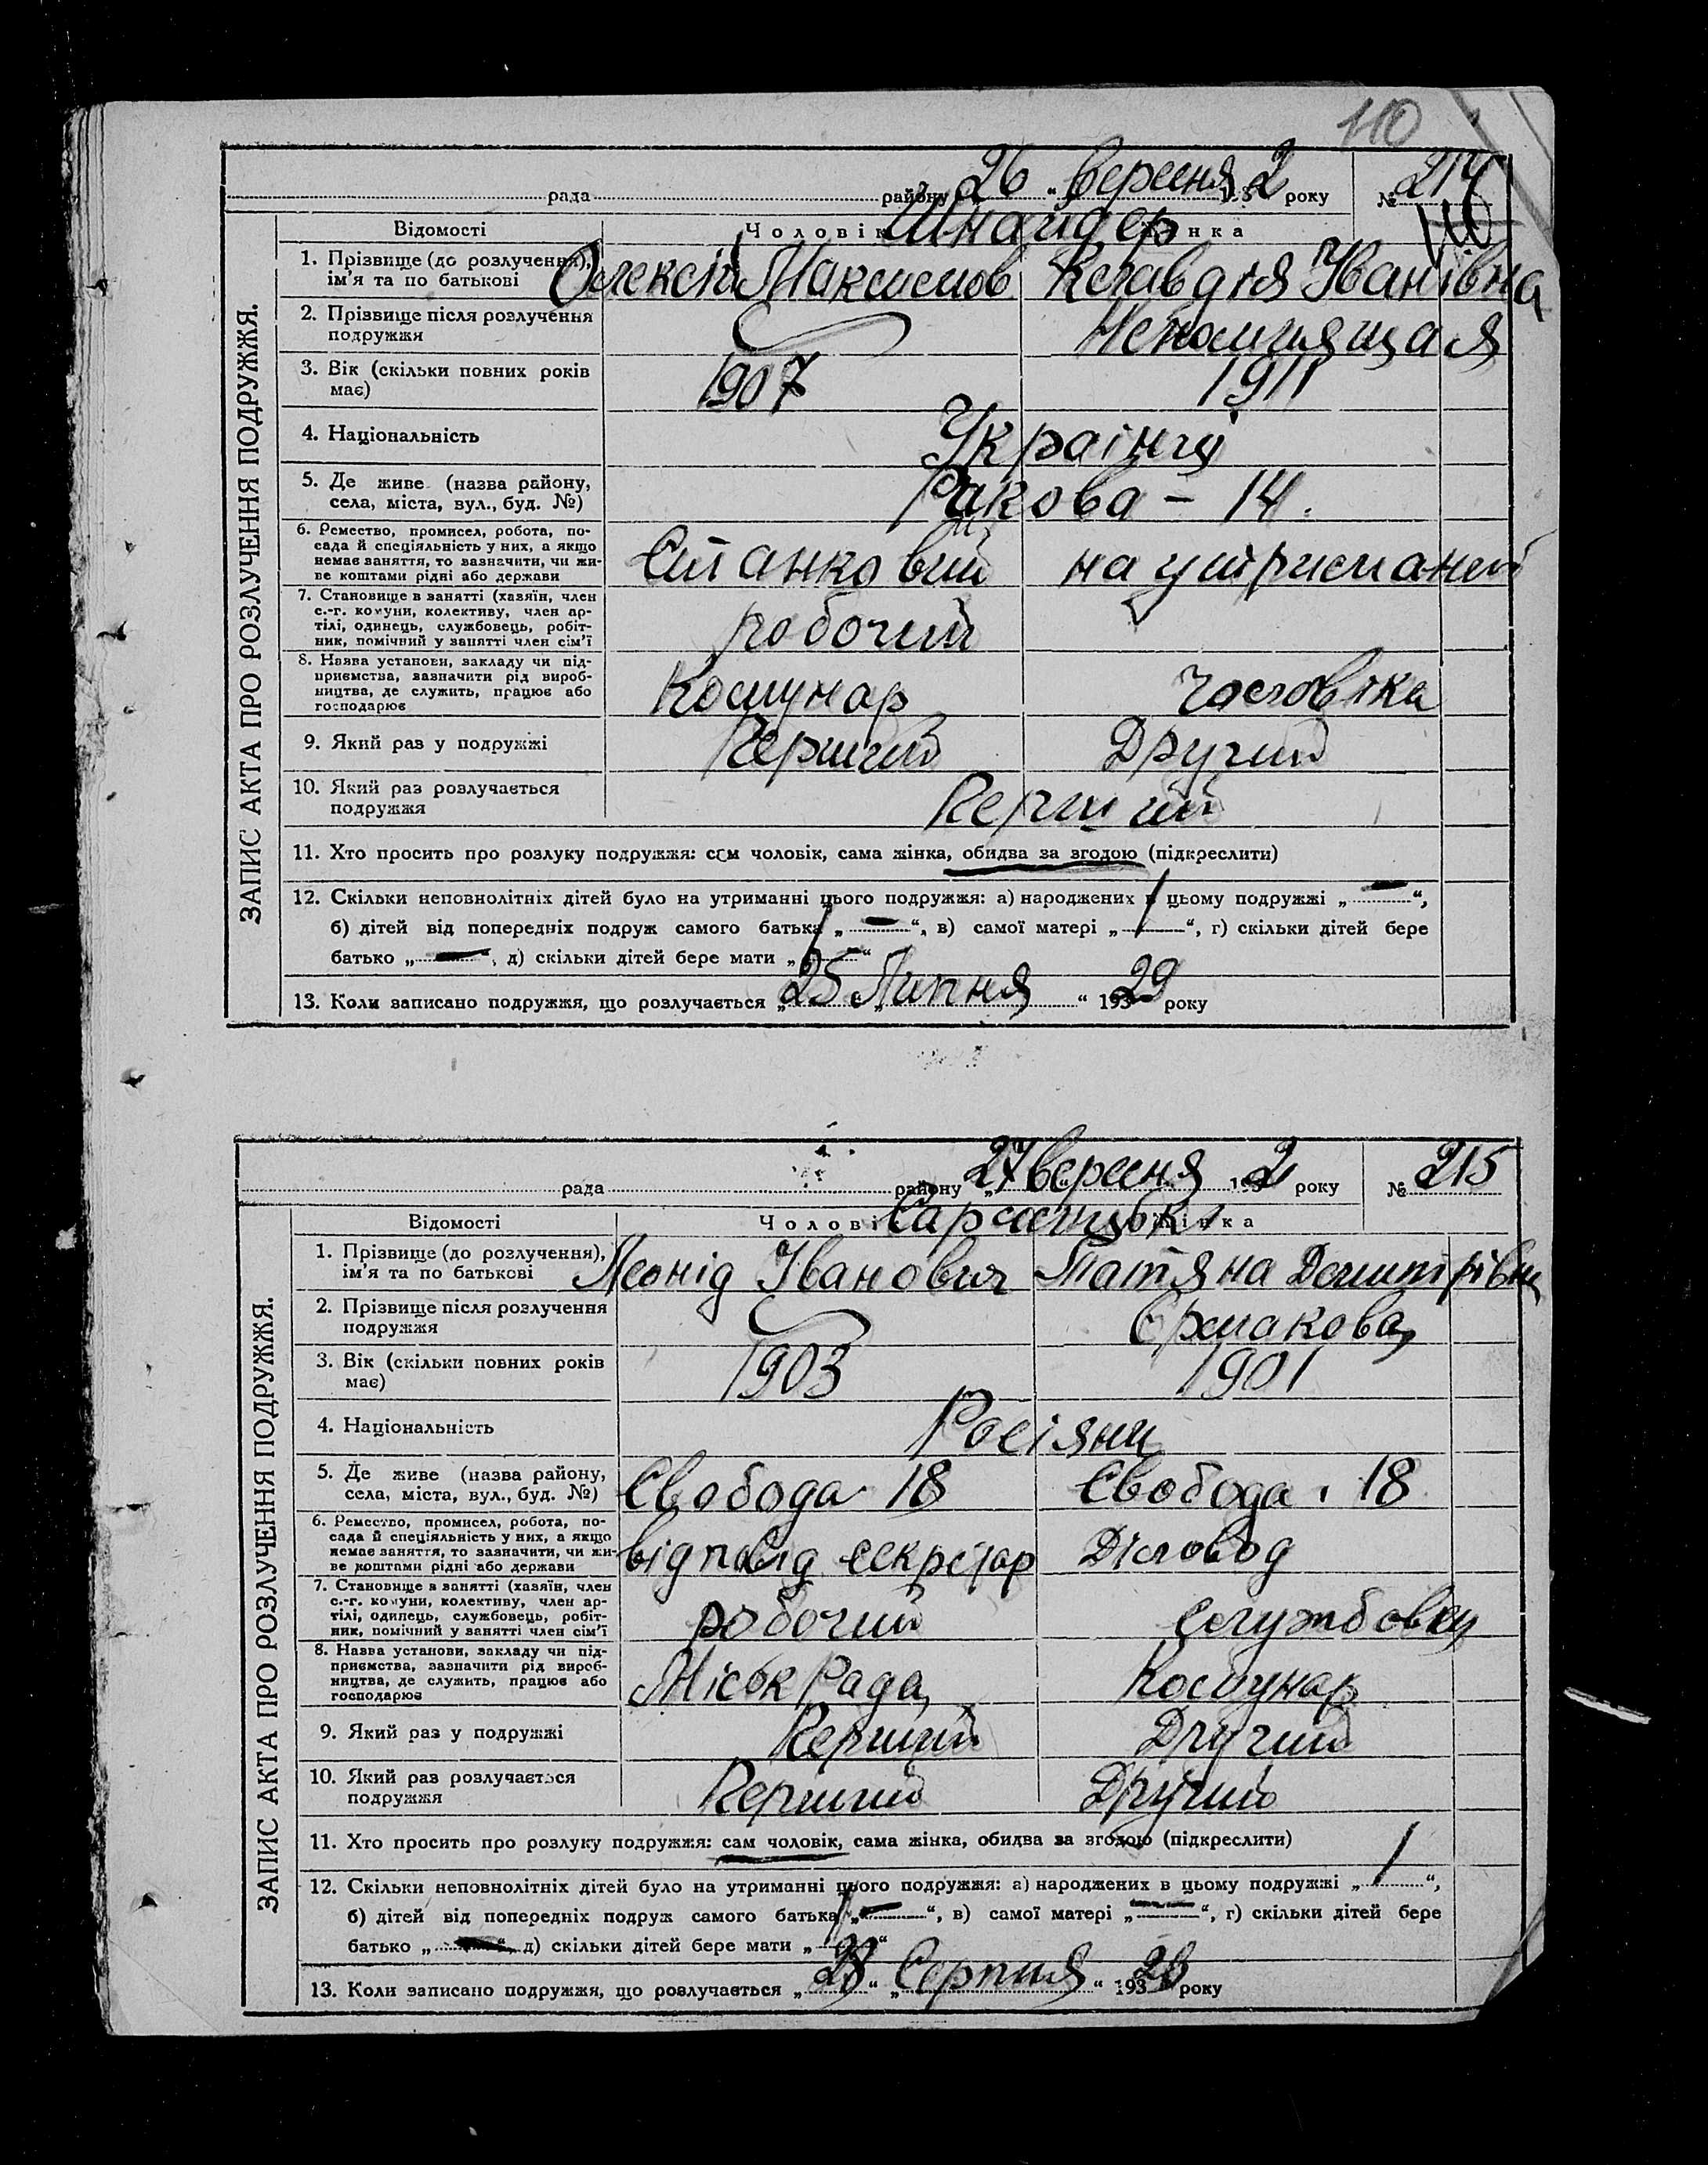 110
рада районy „26“ вересня 1932 року № 214
Відомості Чоловік Жінка
Шнайдер
1. Прізвище (до розлучення), ім'я та по батькові Олексій Максимов Клавдія Іванівна
2. Прізвище після розлучення подружжя Непомнящая
3. Вік (скільки повних років має) 1907 1911
4. Національність Українці
5. Де живе (назва району, села, міста, вул., буд. №) Ракова – 14.
6. Ремество, промисел, робота, посада й спеціяльність у них, а якщо немає заняття, то зазначити, чи живе коштами рідні або держави Станковий на утриманні
7. Становище в занятті (хазяїн, член с.-г. комуни, колективу, член артілі, одинець, службовець, робітник, помічний у занятті член сім'ї робочий
8. Назва установи, закладу чи підприємства, зазначити рід виробництва, де служить, працює або господарює Комунар Чоловіка
9. Який раз у подружжі Перший Другий
10. Який раз розлучається подружжя Перший
11. Хто просить про розлуку подружжя: сам чоловік, сама жінка, обидва за згодою (підкреслити)
12. Скільки неповнолітніх дітей було на утриманні цього подружжя: а) народжених в цьому подружжі „ — “,
б) дітей від попередніх подруж самого батька „ — “, в) самої матері „ 1 “, г) скільки дітей бере
батько „ — “, д) скільки дітей бере мати „ 1 “
13. Коли записано подружжя, що розлучається „25“ „Липня“ 19329 року
ЗАПИС АКТА ПРО РОЗЛУЧЕННЯ ПОДРУЖЖЯ.
рада району „27“ вересня 1932 року № 215
Відомості Чоловік Жінка
1. Прізвище (до розлучення), ім'я та по батькові Леонід Іванович Татяна Дмитрівна
2. Прізвище після розлучення подружжя Єрмакова
3. Вік (скільки повних років має) 1903 1901
4. Національність Росіяни
5. Де живе (назва району, села, міста, вул., буд. №) Свобода 18 Свобода 18
6. Ремество, промисел, робота, посада й спеціяльність у них, а якщо немає заняття, то зазначити, чи живе коштами рідні або держави відповід секретар Діловод
7. Становище в занятті (хазяїн, член с.-г. комуни, колективу, член артілі, одинець, службовець, робітник, помічний у занятті член сім'ї робочий службовец
8. Назва установи, закладу чи підприємства, зазначити рід виробництва, де служить, працює або господарює Міськ Рада Комунар
9. Який раз у подружжі Перший Другий
10. Який раз розлучається подружжя Перший Другий
11. Хто просить про розлуку подружжя: сам чоловік, сама жінка, обидва за згодою (підкреслити)
12. Скільки неповнолітніх дітей було на утриманні цього подружжя: а) народжених в цьому подружжі „ 1 “,
б) дітей від попередніх подруж самого батька „ — “, в) самої матері „ — “, г) скільки дітей бере
батько „ — “, д) скільки дітей бере мати „ 1 “
13. Коли записано подружжя, що розлучається „28“ „Серпня“ 193 року
ЗАПИС АКТА ПРО РОЗЛУЧЕННЯ ПОДРУЖЖЯ.